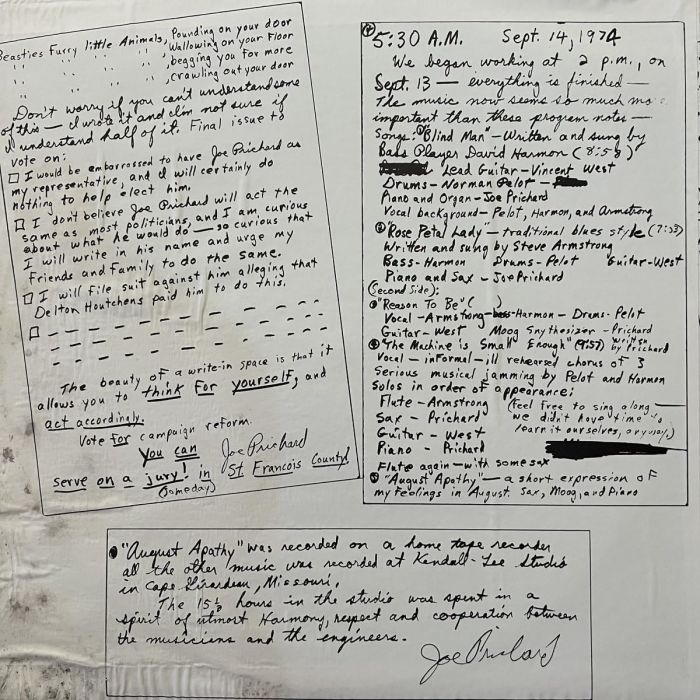 Beasties Furry little Animals, Pounding on your door
" " " ", Wallowing on your Floor
" " " ", begging you for more
" " " ", crawling out your door
Don't worry if you can't understand some
of this — I wrote it and I'm not sure if
I understand half of it. Final issue to
vote on:
□ I would be embarrassed to have Joe Prichard as
my representative, and I will certainly do
nothing to help elect him.
□ I don't believe Joe Prichard will act the
same as most politicians, and I am curious
about what he would do — so curious that
I will write in his name and urge my
Friends and Family to do the same.
□ I will file suit against him alleging that
Delton Houtchens paid him to do this.
□
The beauty of a write-in space is that it
allows you to think for yourself, and
act accordingly.
Vote for campaign reform.
You can
serve on a jury! in
(someday)
Joe Prichard
St Francois County!
5:30 A.M. Sept. 14, 1974
We began working at 2 p.m., on
Sept. 13 — everything is finished —
The music now seems so much mo
important than these program notes —
Songs: "Blind Man" — Written and sung by
Bass Player David Harmon (8:58)
Lead Guitar — Vincent West
Drums — Norman Pelot —
Piano and Organ — Joe Prichard
Vocal background — Pelot, Harmon, and Armstrong
② "Rose Petal Lady" — traditional blues style (7:53)
Written and sung by Steve Armstrong
Bass — Harmon Drums — Pelot Guitar — West
Piano and Sax — Joe Prichard
(Second Side):
"Reason To Be" ( )
Vocal — Armstrong — Harmon — Drums — Pelot
Guitar — West Moog Snythesizer — Prichard
"The Machine is Small Enough" (9:57) written by Prichard
Vocal — informal — ill rehearsed chorus of 3
Serious musical jamming by Pelot and Harmon
Solos in order of appearance:
Flute — Armstrong (Feel free to sing along —
Sax — Prichard we didn't have time to
Guitar — West learn it ourselves, anyway.)
Piano — Prichard
Flute again — with some sax
"August Apathy" — a short expression of
my feelings in August. Sax, Moog, and Piano
"August Apathy" was recorded on a home tape recorder
all the other music was recorded at Kendall-Lee Studio
in Cape Girardeau, Missouri.
The 15½ hours in the studio was spent in a
spirit of utmost Harmony, respect and cooperation between
the musicians and the engineers.
Joe Prichard